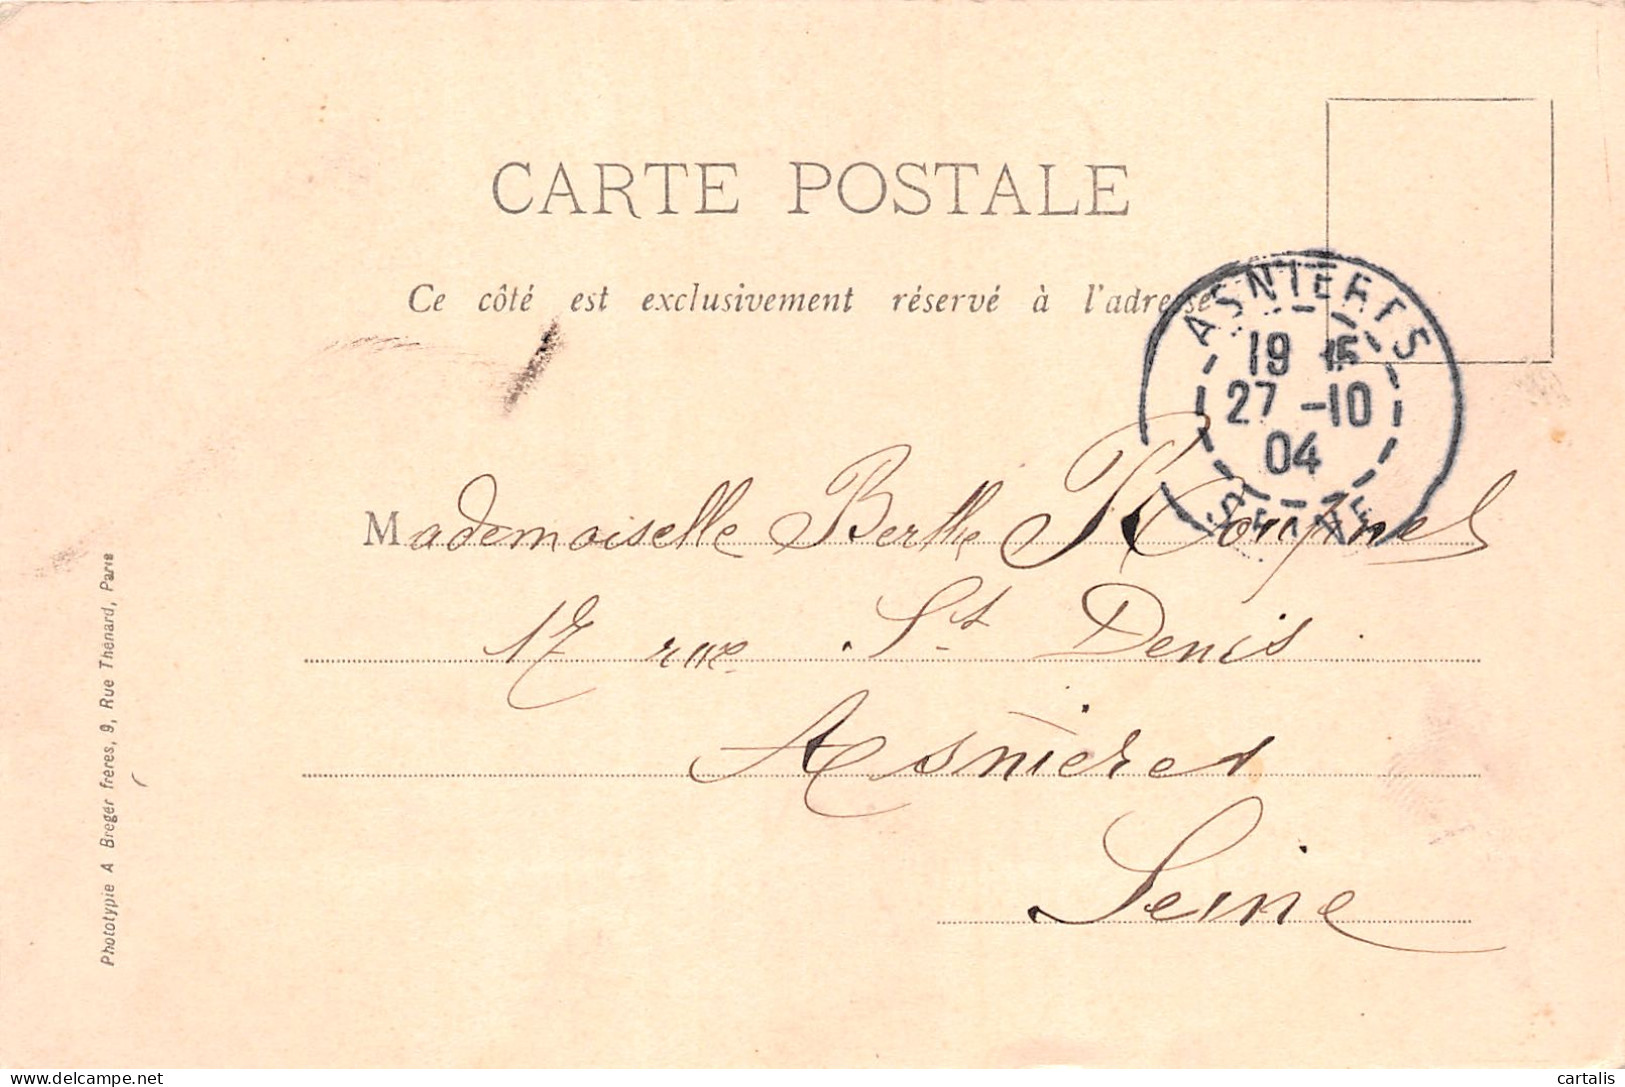 CARTE POSTALE
Ce côté est exclusivement réservé à l'adresse
ASNIERES
19 15
27 -10
04
SEINE
Mademoiselle Berthe
17 rue St Denis
Asnières
Seine
Phototypie A Breger frères, 9, Rue Thénard, Paris
www.delcampe.net
cartalis